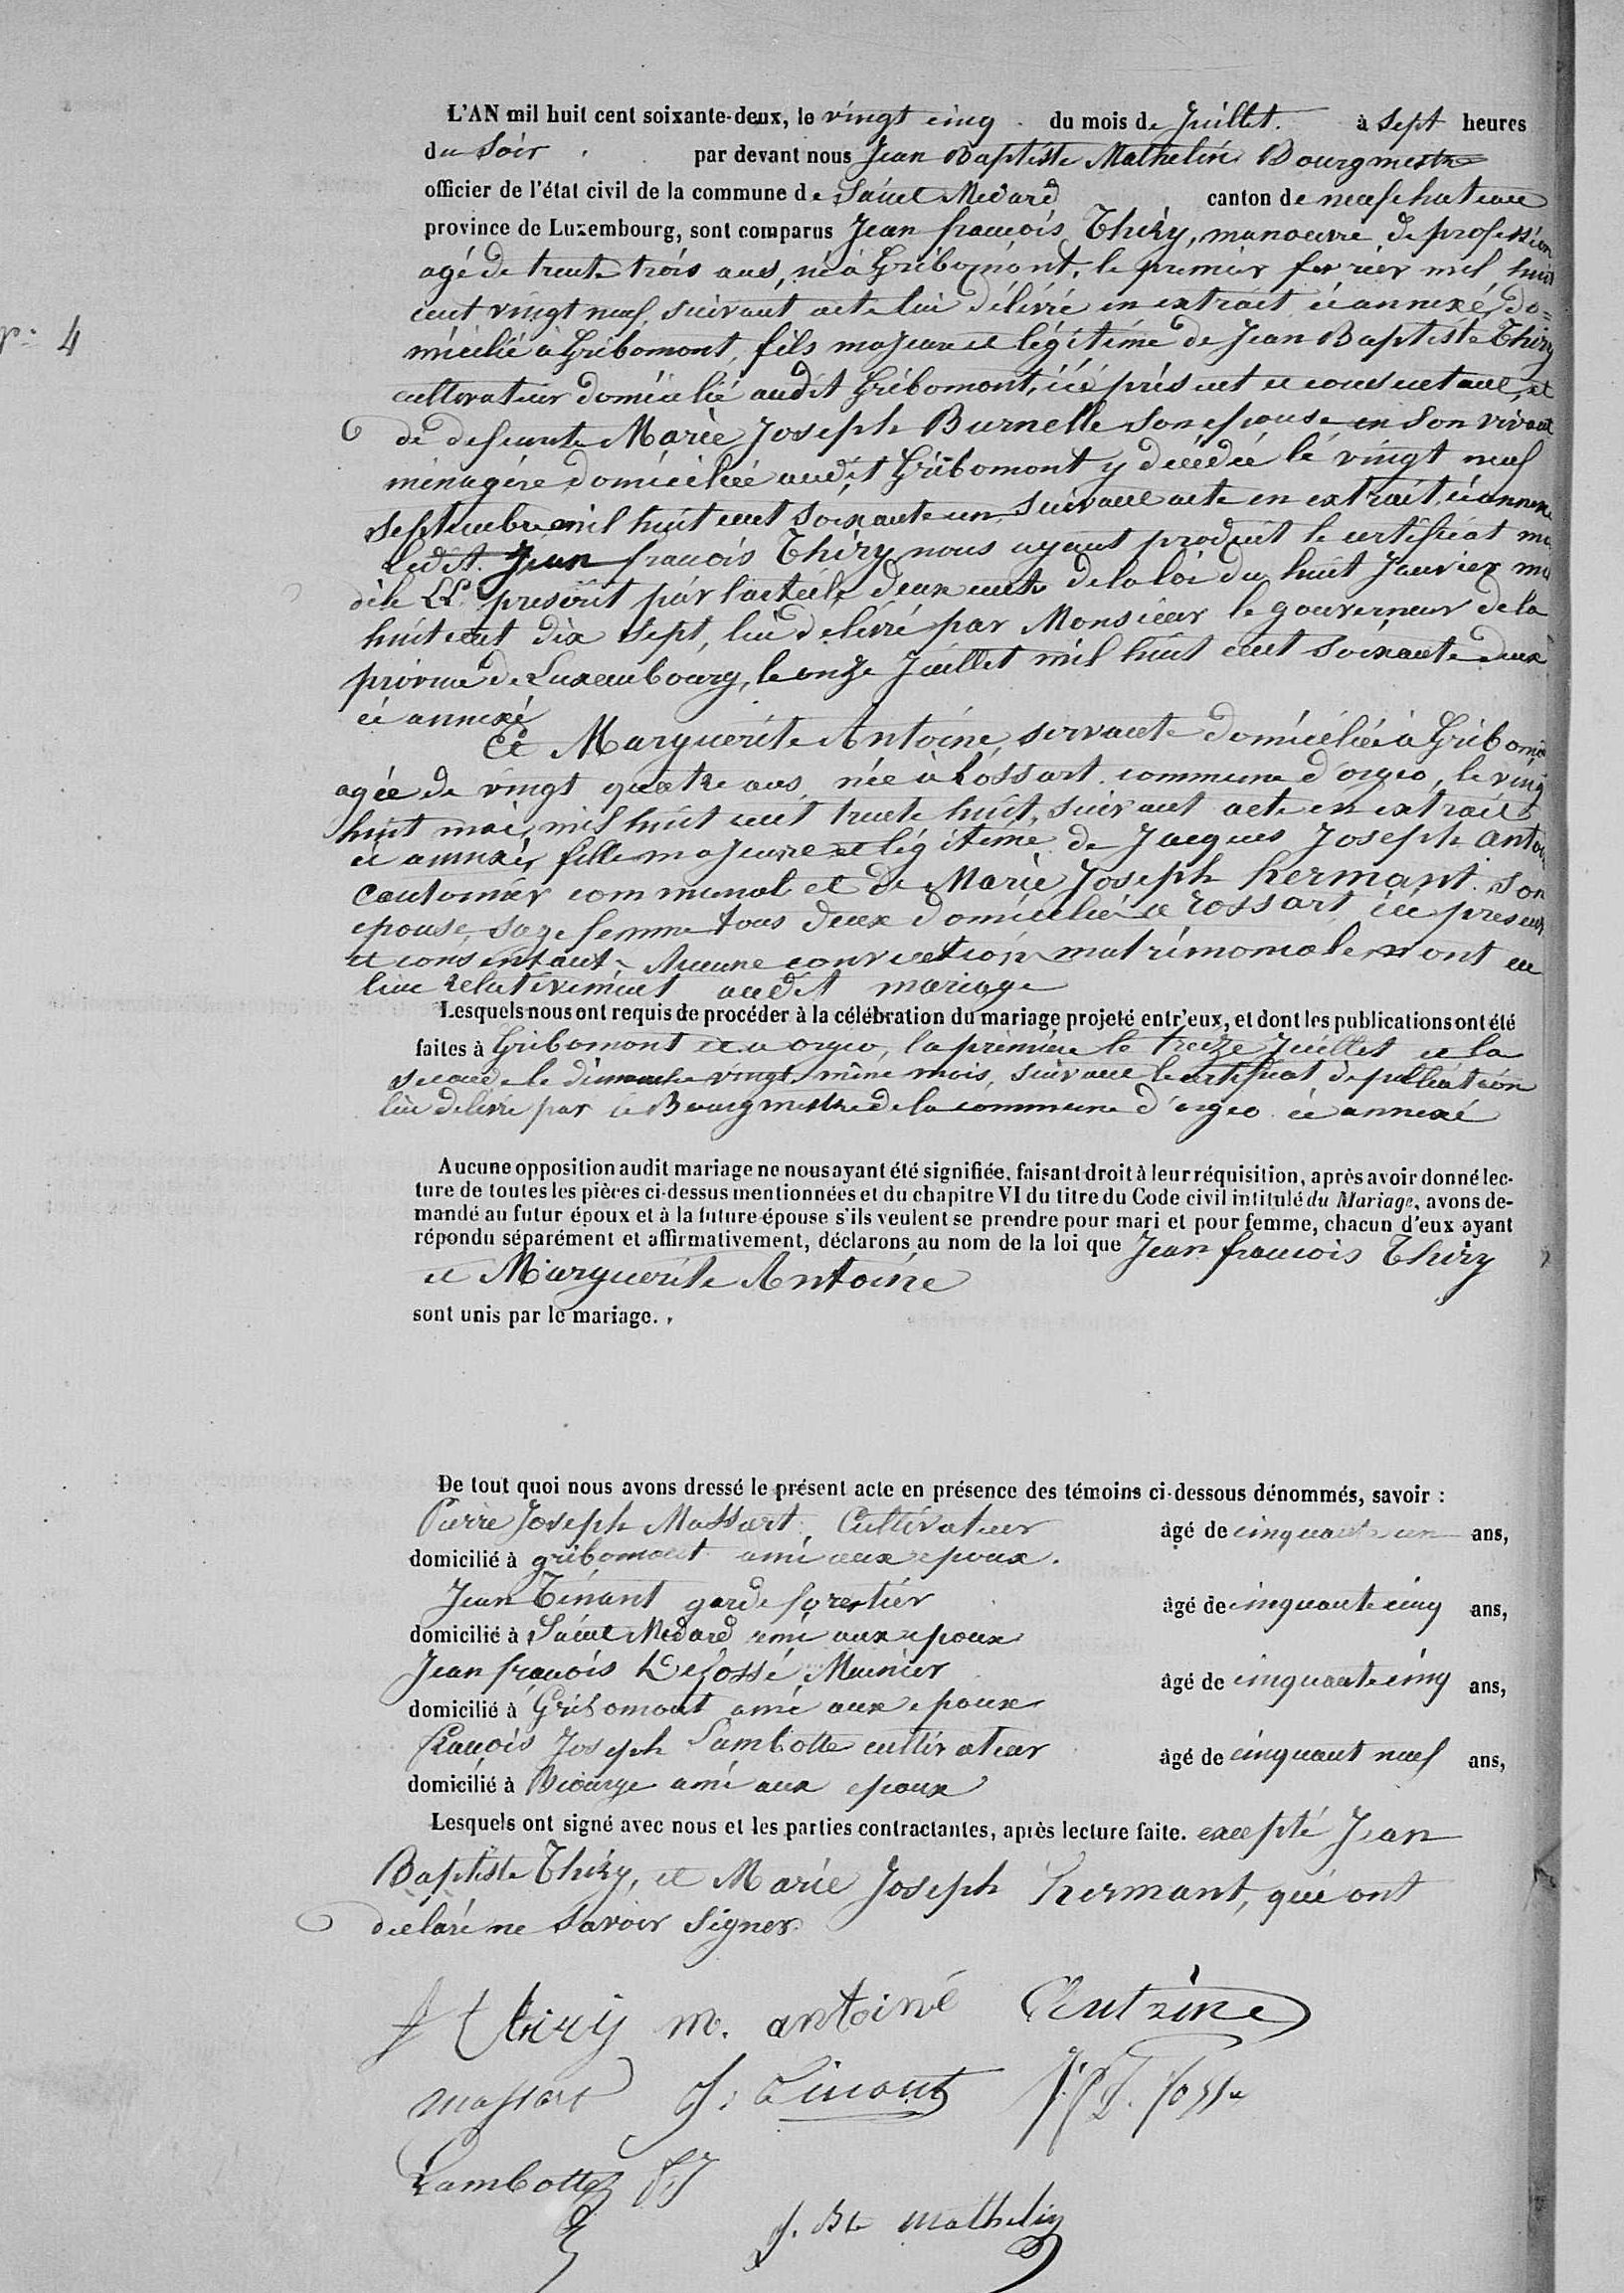 L'AN mil huit cent soixante-deux, le vingt cinq du mois de Juillet. à sept heures
du soir par devant nous Jean Baptiste Mathelin Bourgmestre
officier de l'état civil de la commune de Saint Médard canton de neufchateau
province de Luxembourg, sont comparus Jean françois Thiry, manoeuvre de profession
agé de trente trois ans, né à Gribomont, le premier fevrier mil huit
cent vingt neuf, suivant acte lui délivré en extrait ci annexé, do=
micilié à Gribomont, fils majeur et légitime de Jean Baptiste Thiry
cultivateur domicilié audit Gribomont, ici présent et consentant, et
de defunte Marie Joseph Burnelle son epouse en son vivant
ménagère domiciliée audit Gribomont y decédée le vingt neuf
septembre mil huit cent soixante un, suivant acte en extrait ci annexé
Ledit Jean françois Thiry nous ayant produit le certificat mo
dèle LL prescrit par l'article deux cents de la loi du huit Janvier mil
huit cent dix sept, lui delivré par Monsieur le gouverneur de la
province de Luxembourg, le onze Juillet mil huit cent soixante deux
ci annexé
Nº 4
Et Marguerite Antoine, servante domiciliée à Gribomo
agée de vingt quatre ans, née à Rossart commune d'orgeo, le vingt
huit mai, mil huit cent trente huit, suivant acte en extrait
ci annexé, fille majeure et légitime de Jacques Joseph Antoi
Cantonnier communal et de Marie Joseph hermant son
epouse, sage femme tous deux domiciliés à Rossart ici present
et consentant. Aucune convention matrimoniale n'ont eu
lieu relativement audit mariage
Lesquels nous ont requis de procéder à la célébration du mariage projeté entr'eux, et dont les publications ont été
faites à Gribomont et a orgeo, la première le treize Juillet et la
seconde le dimanche vingt même mois, suivant le certificat de publication
lui delivré par le Bourgmestre de la commune d'orgeo ci annexé
Aucune opposition audit mariage ne nous ayant été signifiée, faisant droit à leur réquisition, après avoir donné lec-
ture de toutes les pièces ci-dessus mentionnées et du chapitre VI du titre du Code civil intitulé du Mariage, avons de-
mandé au futur époux et à la future épouse s'ils veulent se prendre pour mari et pour femme, chacun d'eux ayant
répondu séparément et affirmativement, déclarons au nom de la loi que Jean françois Thiry
et Marguerite Antoine
sont unis par le mariage.
De tout quoi nous avons dressé le présent acte en présence des témoins ci-dessous dénommés, savoir :
Pierre Joseph Massart, Cultivateur âgé de cinquante un ans,
domicilié à gribomont ami aux epoux.
Jean Tinant garde forestier âgé de cinquante cinq ans,
domicilié à Saint Médard ami aux epoux
Jean françois Defossé, Meunier âgé de cinquante cinq ans,
domicilié à Gribomont ami aux epoux
françois Joseph Lambotte cultivateur âgé de cinquant neuf ans,
domicilié à Biourge ami aux epoux
Lesquels ont signé avec nous et les parties contractantes, après lecture faite. excepté Jean
Baptiste Thiry, et Marie Joseph hermant, qui ont
déclaré ne savoir signer
f Thiry m. antoine
massart J. Tinant
Lambotte fJ
J. Bte Mathelin